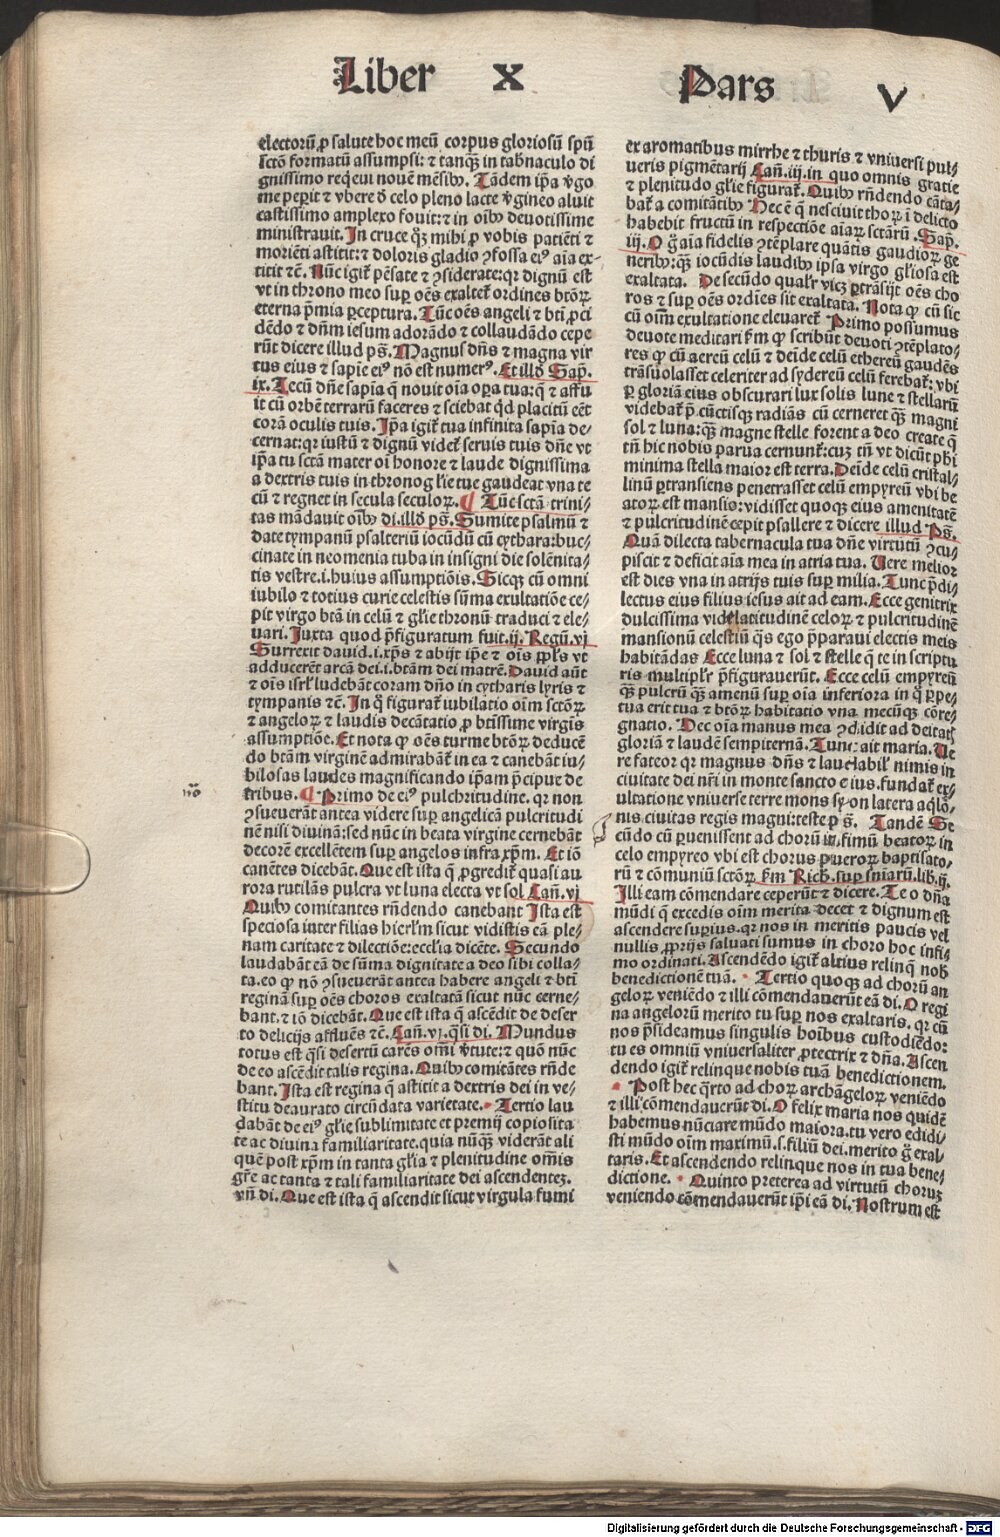 Liber X Pars V
electorũ ꝓ salute hoc meũ corpus gloriosũ spũ
sctõ formatũ assumpsi: ⁊ tanqꝫ in tabñaculo di
gnissimo reqͥeui nouẽ mẽsibꝰ. Tãdem ip̃a v̉go
me peꝑit ⁊ vbere đ celo pleno lacte v̉gineo aluit
castissimo amplexo fouit: ⁊ in oĩbꝰ deuotissime
ministrauit. In cruce qͦꝫ mihi ꝓ vobis patiẽti ⁊
moriẽti astitit: ⁊ doloris gladio ꝯfossa eiꝰ aĩa ex-
titit ⁊č. Nũc igiẗ pẽsate ⁊ ꝯsiderate: qꝛ dignũ est
vt in throno meo suꝑ oẽs exalteẗ ordines btõꝝ
eterna p̃mia ꝑceptura. Tũc oẽs angeli ⁊ bti ꝓci
dẽdo ⁊ dñm iesum adorãdo ⁊ collaudãdo cepe
rũt dicere illud pš. Magnus dñs ⁊ magna vir
tus eius ⁊ sapiẽ eiꝰ nõ est numerꝰ. Et illđ Sap̃.
ix. Tecũ dñe sapia q̃ nouit oĩa oꝑa tua: q̃ ⁊ affu
it cũ orbẽ terrarũ faceres ⁊ sciebat qͥd placitũ eẽt
corã oculis tuis. Ip̃a igiẗ tua infinita sapĩa de-
cernat: qꝛ iustũ ⁊ dignũ videẗ seruis tuis dñe vt
ip̃a tu sctã mater oĩ honore ⁊ laude dignissima
a dextris tuis in throno gl̃ie tue gaudeat vna te
cũ ⁊ regnet in secula seculoꝝ. ¶ Tũc sctã trini-
tas mãdauit oĩbꝰ di. illđ pš. Sumite psalmũ ⁊
date tympanũ psalteriũ iocũdũ cũ cythara: buc-
cinate in neomenia tuba in insigni die solẽnita-
tis vestre .i. huius assumptiõis. Sicqꝫ cũ omni
iubilo ⁊ totius curie celestis sũma exultatiõe ce-
pit virgo btã in celũ ⁊ gl̃ie thronũ traduci ⁊ ele-
uari. Juxta quod p̃figuratum fuit .ij. Regũ. vj
Surrexit dauid .i. xp̃s ⁊ abijt ip̃e ⁊ oĩs ppl̃s vt
adducerẽt arcã dei .i. btãm dei matrẽ. Dauid aũt
⁊ oĩs isrl̃ ludebãt coram dño in cytharis lyris ⁊
tympanis ⁊č. In qͦ figuraẗ iubilatio oĩm sctõꝝ
⁊ angeloꝝ ⁊ laudis decãtatio ꝓ btissime virgĩs
assumptiõe. Et nota ꝙ oẽs turme btõꝝ deducẽ
do btãm virginẽ admirabãẗ in ea ⁊ canebãt iu-
bilosas laudes magnificando ip̃am p̃cipue de
tribus. ¶ Primo de eiꝰ pulchritudine. qꝛ non
ꝯsueuerãt antea videre suꝑ angelicã pulcritudi
nẽ nisi diuinã: sed nũc in beata virgine cernebãt
decorẽ excellẽtem suꝑ angelos infra xp̃m. Et iõ
canẽtes dicebãt. Que est ista q̃ ꝓgrediẗ quasi au
rora rutilãs pulcra vt luna electa vt sol Cañ. vj
Quibꝰ comitantes rñdendo canebant Ista est
speciosa inter filias hierl̃m sicut vidistis eã ple-
nam caritate ⁊ dilectiõe: eccl̃ia dicẽte. Secundo
laudabãt eã de sũma dignitate a deo sibi colla-
ta. eo ꝙ nõ ꝯsueuerãt antea habere angeli ⁊ bti
reginã suꝑ oẽs choros exaltatã sicut nũc cerne-
bant. ⁊ iõ dicebãt. Que est ista q̃ ascẽdit de deser
to delicijs affluẽs ⁊č. Cañ. vj. qͣsi di. Mundus
totus est qͣsi desertũ carẽs omi v̉tute: ⁊ quõ nũc
de eo ascẽdit talis regina. Quibꝰ comitãtes rñde
bant. Ista est regina q̃ astitit a dextris dei in ve-
stitu deaurato circũdata varietate. Tertio lau
dabãt de eiꝰ gl̃ie sublimitate et premij copiosita
te ac diuina familiaritate. quia nũqꝫ viderãt ali
quẽ post xp̃m in tanta gl̃ia ⁊ plenitudine om̃is
gr̃e ac tanta ⁊ tali familiaritate dei ascendenteꝫ.
vñ di. Que est ista q̃ ascendit sicut virgula fumi
ex aromatibus mirrhe ⁊ thuris ⁊ vniuersi pul-
ueris pigmẽtarij Cañ. iij. in quo omnis gratie
⁊ plenitudo gl̃ie figuraẗ. Quibꝰ rñdendo cãta-
baẗ a comitãtibꝰ Hec ẽ q̃ nesciuit thoꝝ ĩ delicto
habebit fructũ in respectiõe aĩaꝝ sctãrũ. Sap̃.
iij. O g̃ aĩa fidelis ꝯtẽplare quãtis gaudioꝝ ge
neribꝰ: qꝫ iocũdis laudibꝰ ipsa virgo gl̃iosa est
exaltata. De secũdo qualr̃ vicꝫ ꝑtrãsijt oẽs cho
ros ⁊ suꝑ oẽs ordĩes sit exaltata. Nota ꝙ cũ sic
cũ oĩm exultatione eleuareẗ. Primo possumus
deuote meditari ẜm ꝙ scribũt deuoti ꝯtẽplato-
res ꝙ cũ aereũ celũ ⁊ deĩde celũ ethereũ gaudẽs
trãsuolasset celeriter ad sydereũ celũ ferebaẗ: vbi
ꝑ gloriã eius obscurari lux solis lune ⁊ stellarũ
videbaẗ p̃ cũctisqꝫ radiãs cũ cerneret qꝫ magni
sol ⁊ luna: qꝫ magne stelle forent a deo create q̃
tñ hic nobis parua cernunẗ: cuꝫ tñ vt dicũt phi
minima stella maior est terra. Deĩde celũ cristal-
linũ ꝑtransiens penetrasset celũ empyreũ vbi be
atoꝝ est mansio: vidisset quoqꝫ eius amenitatẽ
⁊ pulcritudinẽ cepit psallere ⁊ dicere illud pš.
Quã dilecta tabernacula tua dñe virtutũ ꝯcu-
piscit ⁊ deficit aĩa mea in atria tua. Vere melior
est dies vna in atrijs tuis suꝑ milia. Tunc p̃di-
lectus eius filius iesus ait ad eam. Ecce genitrix
dulcissima vide latitudinẽ celoꝝ ⁊ pulcritudinẽ
mansionũ celestiũ q̃s ego p̃paraui electis meis
habitãdas Ecce luna ⁊ sol ⁊ stelle q̃ te in scriptu
ris multiplr̃ p̃figurauerũt. Ecce celũ empyreũ
qꝫ pulcrũ qꝫ amenũ suꝑ oĩa inferiora in qͦ ꝑpe-
tua erit tua ⁊ btõꝝ habitatio vna mecũqꝫ cõre-
gnatio. Hec oĩa manus mea ꝯdidit ad deitatꝭ
gloriã ⁊ laudẽ sempiternã. Tunc ait maria. Ve
re fateor qꝛ magnus dñs ⁊ laudabil̃ nimis in
ciuitate dei nr̃i in monte sancto eius. fundaẗ ex-
ultatione vniuerse terre mons syon latera aqͥlo-
nis. ciuitas regis magni: teste p š. Tandẽ Se
cũdo cũ ꝑuenissent ad chorũ infimũ beatoꝝ in
celo empyreo vbi est chorus pueroꝝ baptisato-
rũ ⁊ cõmuniũ sctõꝝ ẜm Rich. suꝑ sniarũ. lib. ij.
Illi eam cõmendare ceperũt ⁊ dicere. Te o dña
mũdi q̃ excedis oĩm merita decet ⁊ dignum est
ascendere suꝑius. qꝛ nos in meritis paucis vel
nullis ꝓprijs saluati sumus in choro hoc infi-
mo ordinati. Ascendẽdo igiẗ altius relinq̃ nob̃
benedictionẽ tuã. Tertio quoqꝫ ad chorũ an
geloꝝ veniẽdo ⁊ illi cõmendauerũt eã di. O regi
na angelorũ merito tu suꝑ nos exaltaris. qꝛ cũ
nos p̃sideamus singulis hoĩbus custodiẽdo:
tu es omniũ vniuersaliter ꝓtectrix ⁊ dña. Ascen
dendo igiẗ relinque nobis tuã benedictionem.
Post hec qͣrto ad choꝝ archãgeloꝝ veniẽdo
⁊ illi cõmendauerũt di. O felix maria nos quidẽ
habemus nũciare mũdo maiora. tu vero edidi-
sti mũdo oĩm maximũ .s. filiũ dei. merito g̃ exal-
taris. Et ascendendo relinque nos in tua bene-
dictione. Quinto preterea ad virtutũ chorus
veniendo cõmendauerũt ip̃i eã di. Nostrum est
Digitalisierung gefördert durch die Deutsche Forschungsgemeinschaft - DFG